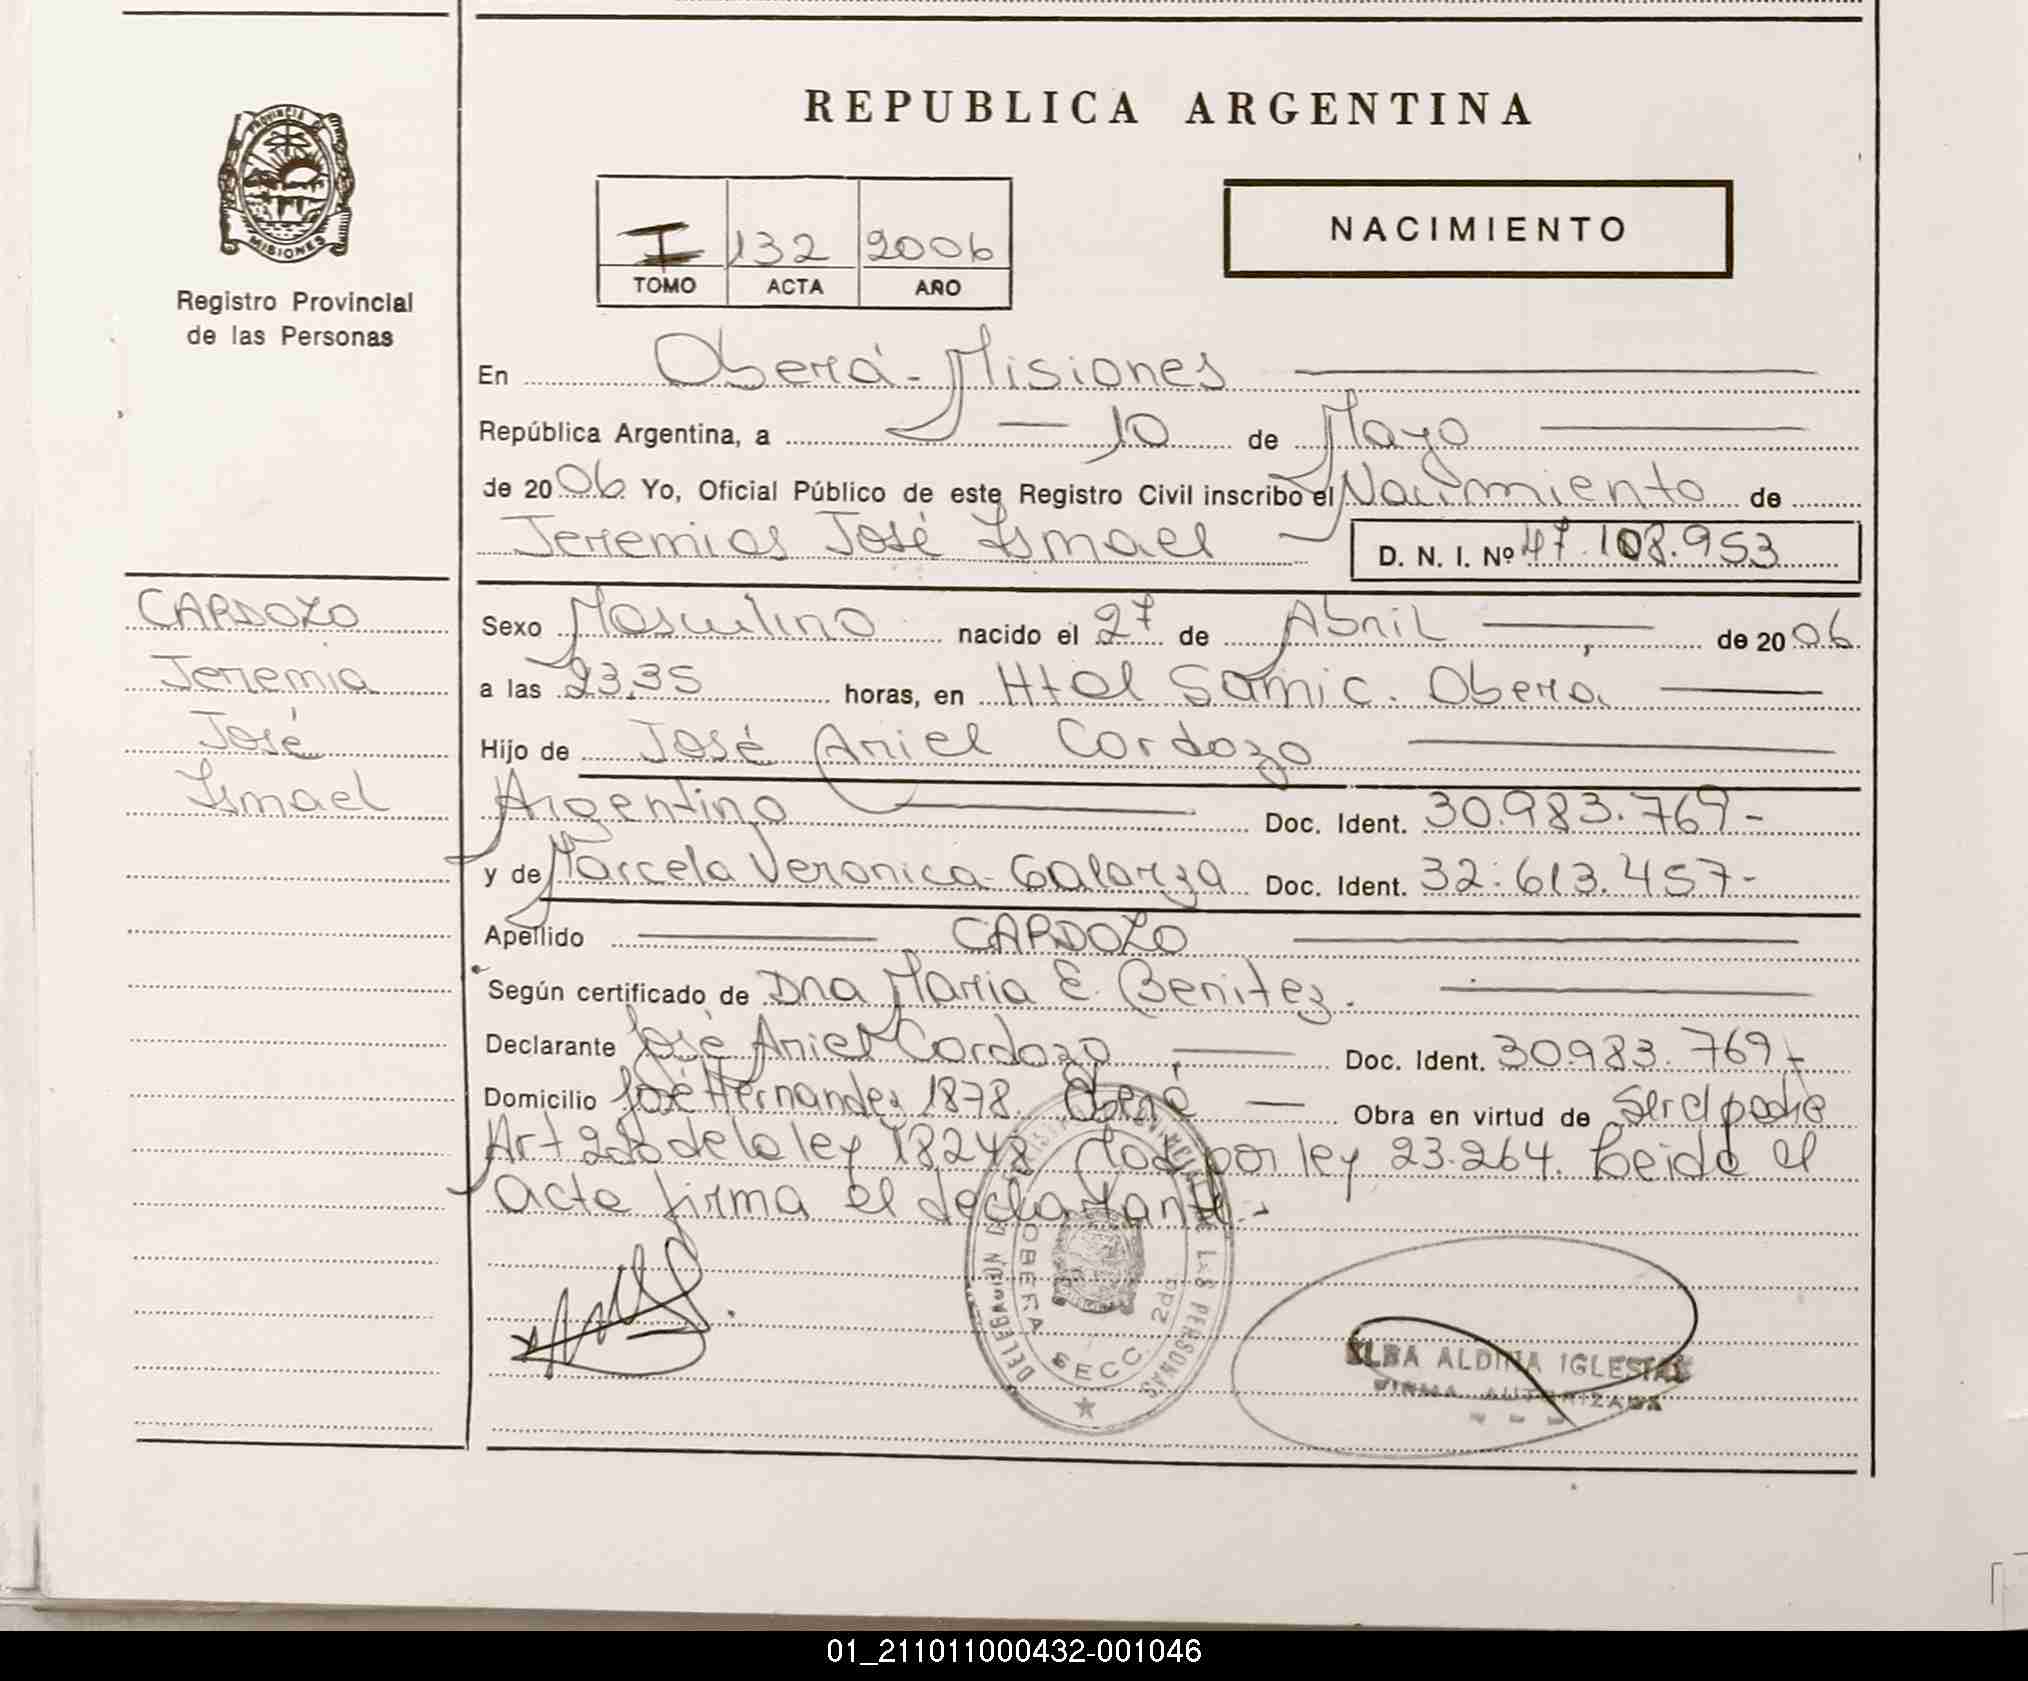 REPUBLICA ARGENTINA
PROVINCIA DE MISIONES
Registro Provincial
de las Personas
I 132 2006
TOMO ACTA AÑO
NACIMIENTO
En Oberá - Misiones
República Argentina, a 10 de Mayo
de 2006 Yo, Oficial Público de este Registro Civil inscribo el Nacimiento de
Jeremias José Ismael D. N. I. Nº 47.108.953
CARDOZO
Jeremia
José
Ismael
Sexo Masculino nacido el 27 de Abril de 2006
a las 23.35 horas, en Htal Samic. Oberá
Hijo de José Ariel Cardozo
Argentino Doc. Ident. 30.983.769-
y de Marcela Veronica Galarza Doc. Ident. 32.613.457-
Apellido CARDOZO
Según certificado de Dna Maria E. Benitez.
Declarante José Ariel Cardozo Doc. Ident. 30.983.769-
Domicilio José Hernandez 1878. Oberá Obra en virtud de Ser el padre
Art de la ley 18248 Mod por ley 23.264. Leida el
acta firma el declarante.-
DELEGACIÓN DEL REGISTRO PROVINCIAL DE LAS PERSONAS
OBERA SECC. 2da
ELBA ALDINA IGLESIAS
FIRMA AUTORIZADA
01_211011000432-001046